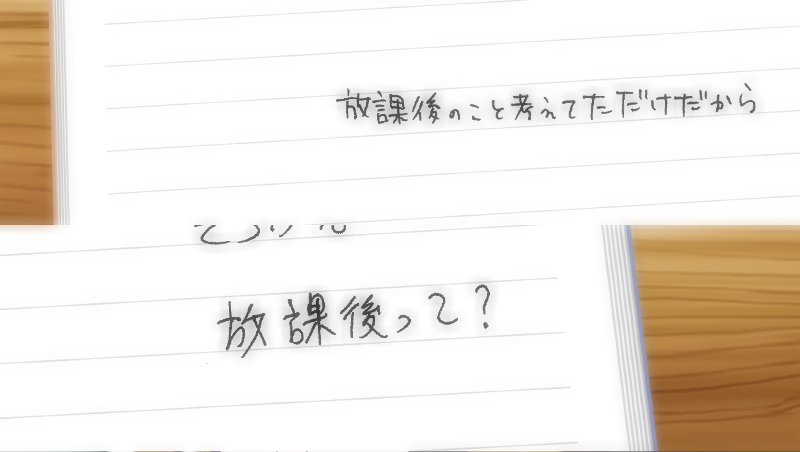 放課後のこと考えてただけだから
放課後って?